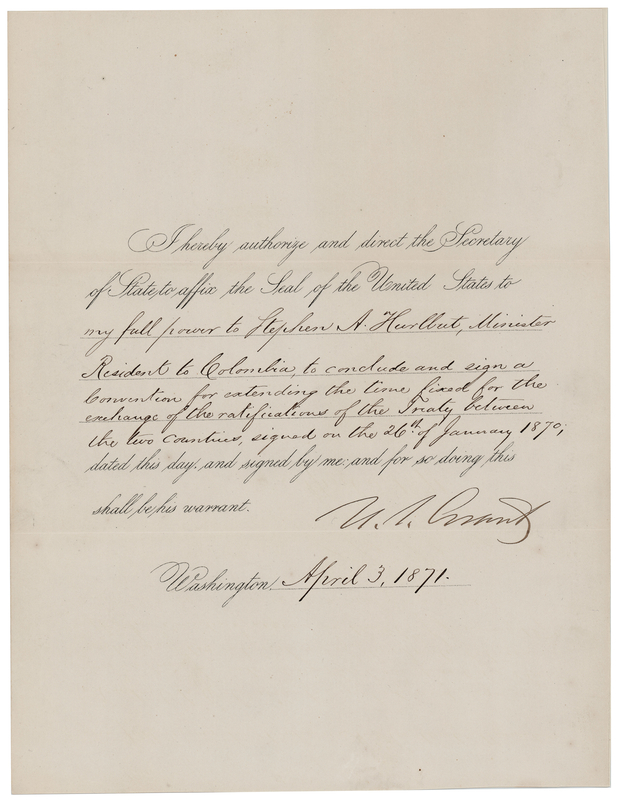 I hereby authorize and direct the Secretary
of State to affix the Seal of the United States to
my full power to Stephen A. Hurlbut, Minister
Resident to Colombia, to conclude and sign a
Convention for extending the time fixed for the
exchange of the ratifications of the Treaty between
the two Countries, signed on the 26th of January 1870;
dated this day, and signed by me; and for so doing this
shall be his warrant.
U. S. Grant
Washington, April 3, 1871.